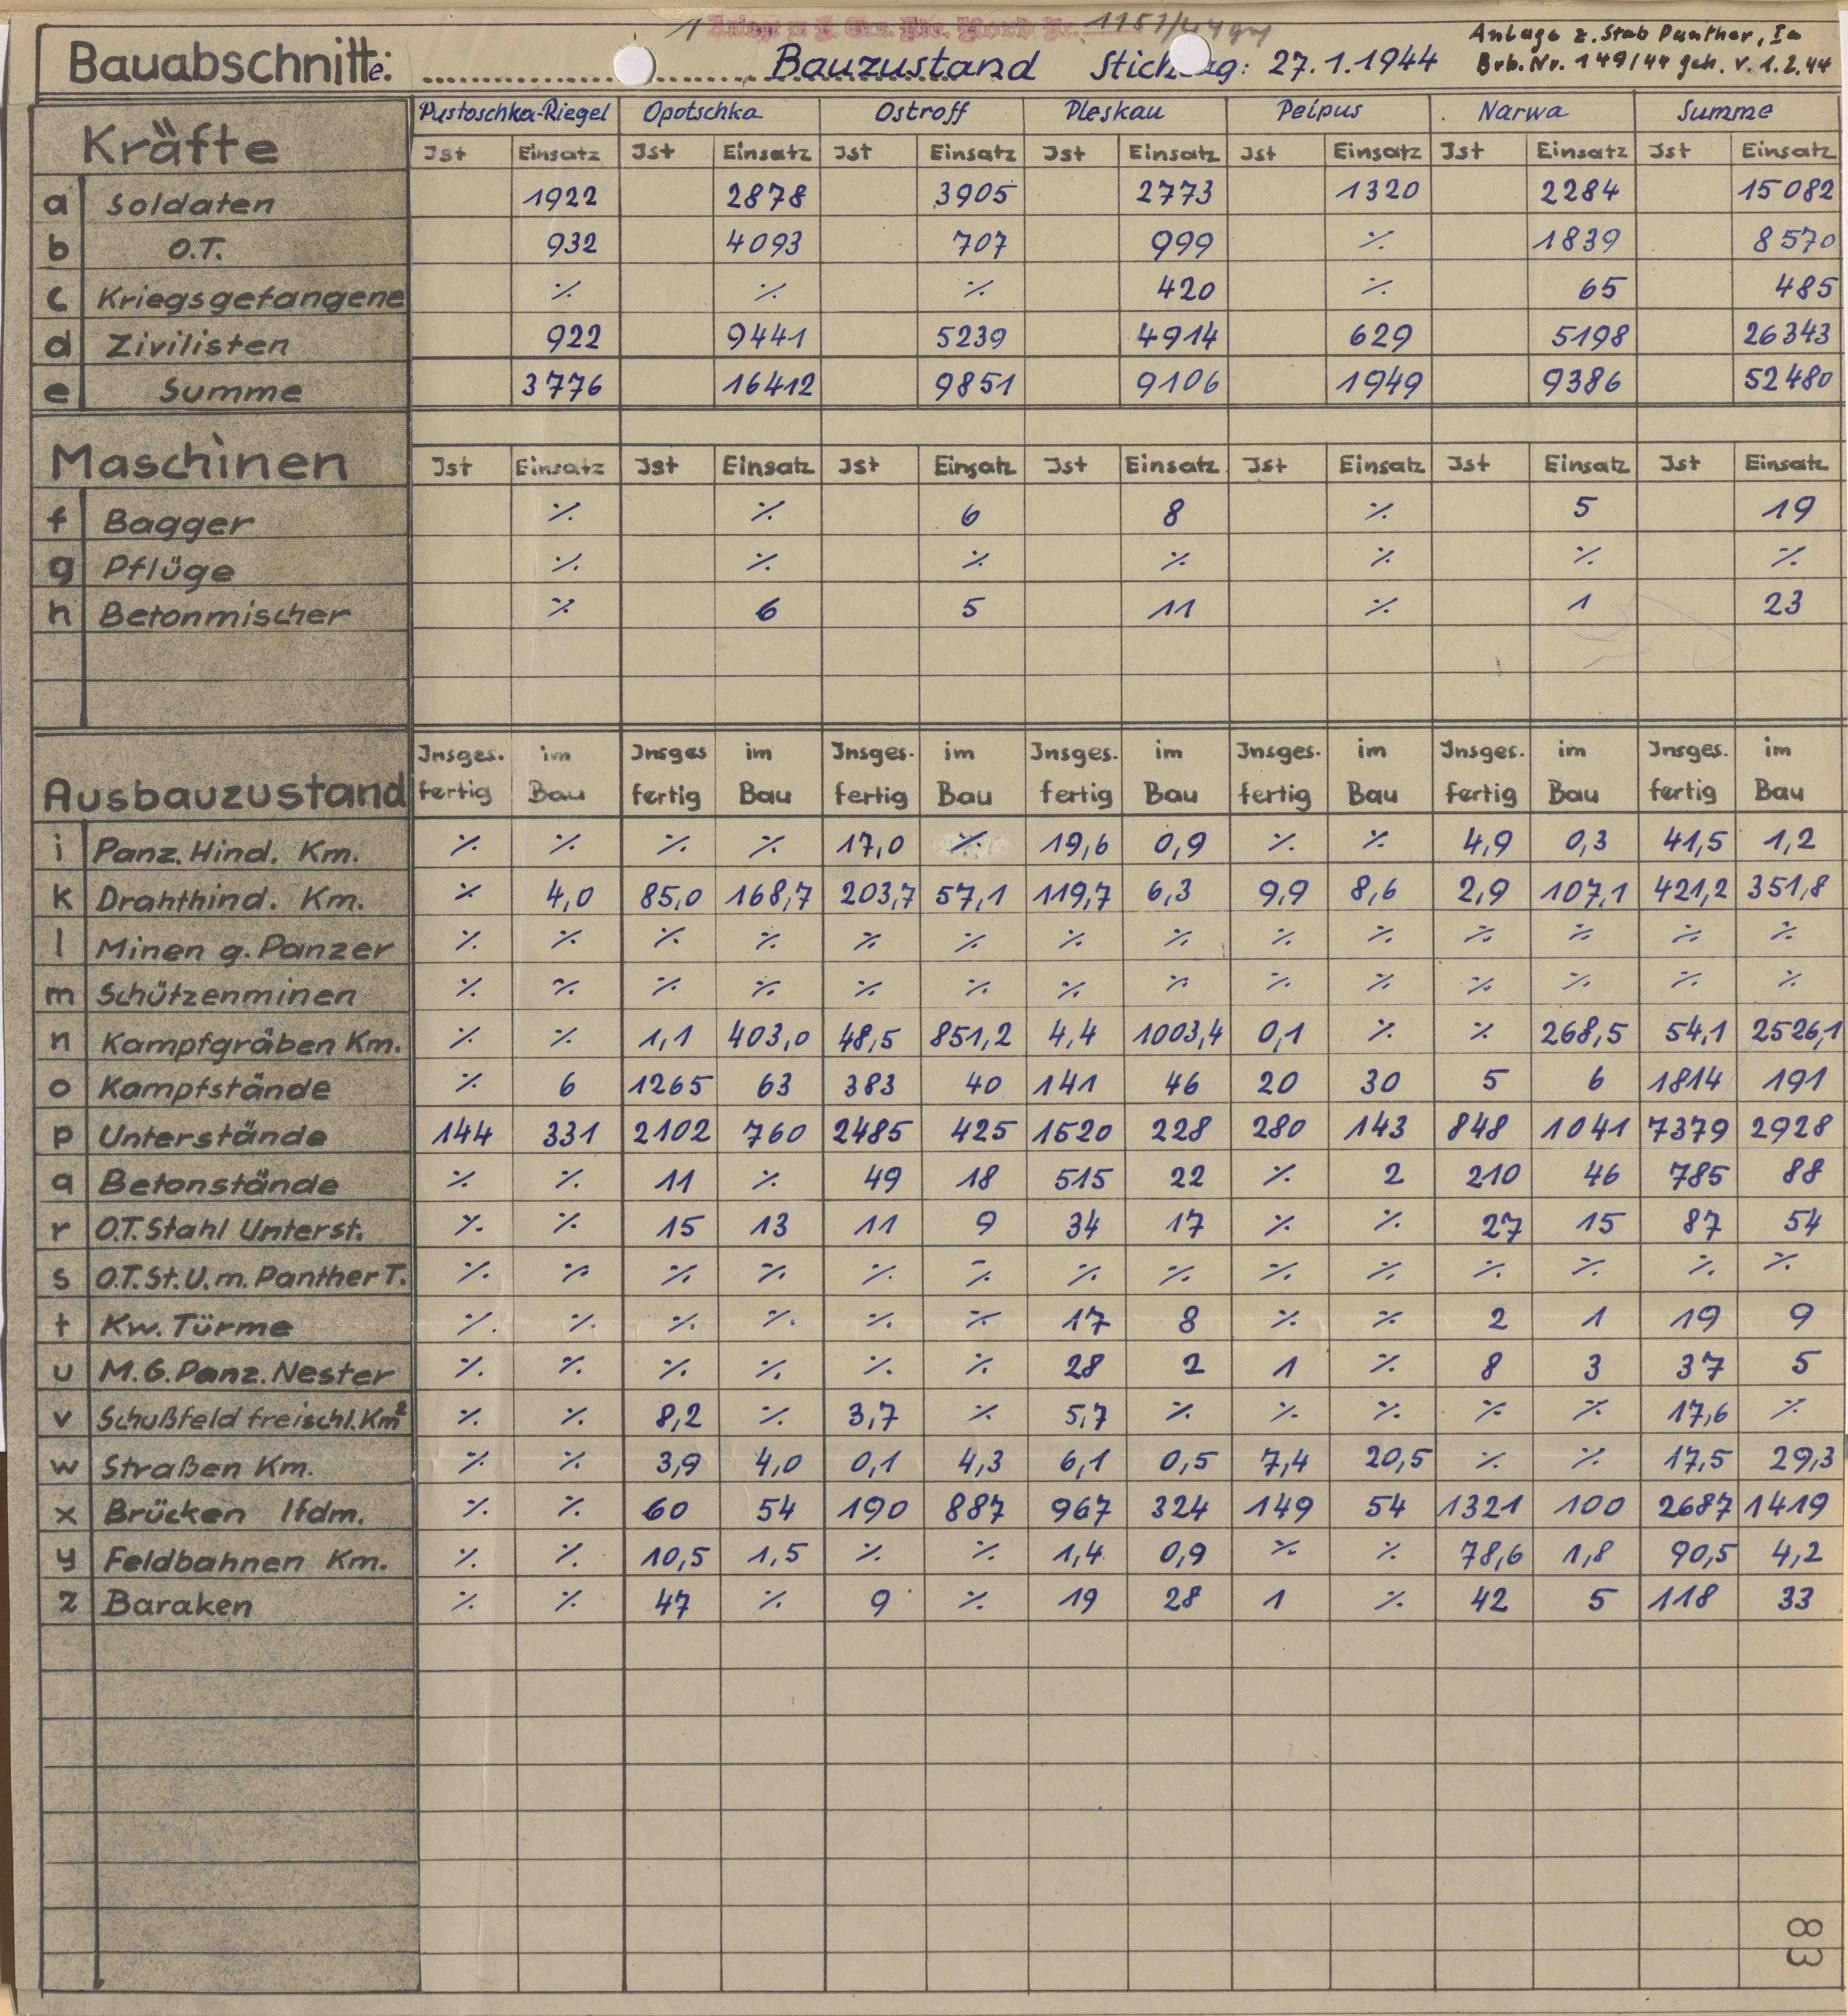 1 1151/44 g
Bauabschnitte: Bauzustand Stich ag: 27.1.1944 Anlage z. Stab Panther, Ia
Brb. Nr. 149/44 geh. v. 1.2.44
Kräfte Pustoschka-Riegel Opotschka Ostroff Pleskau Peipus Narwa Summe
Ist Einsatz Ist Einsatz Ist Einsatz Ist Einsatz Ist Einsatz Ist Einsatz Ist Einsatz
a Soldaten 1922 2878 3905 2773 1320 2284 15082
b O.T. 932 4093 707 999 ⁒ 1839 8570
c Kriegsgefangene ⁒ ⁒ ⁒ 420 ⁒ 65 485
d Zivilisten 922 9441 5239 4914 629 5198 26343
e Summe 3776 16412 9851 9106 1949 9386 52480
Maschinen Ist Einsatz Ist Einsatz Ist Einsatz Ist Einsatz Ist Einsatz Ist Einsatz Ist Einsatz
f Bagger ⁒ ⁒ 6 8 ⁒ 5 19
g Pflüge ⁒ ⁒ ⁒ ⁒ ⁒ ⁒ ⁒
h Betonmischer ⁒ 6 5 11 ⁒ 1 23
Ausbauzustand Insges. im Insges im Insges. im Insges. im Insges. im Insges. im Insges. im
fertig Bau fertig Bau fertig Bau fertig Bau fertig Bau fertig Bau fertig Bau
i Panz. Hind. Km. ⁒ ⁒ ⁒ ⁒ 17,0 ⁒ 19,6 0,9 ⁒ ⁒ 4,9 0,3 41,5 1,2
k Drahthind. Km. ⁒ 4,0 85,0 168,7 203,7 57,1 119,7 6,3 9,9 8,6 2,9 107,1 421,2 351,8
l Minen g. Panzer ⁒ ⁒ ⁒ ⁒ ⁒ ⁒ ⁒ ⁒ ⁒ ⁒ ⁒ ⁒ ⁒ ⁒
m Schützenminen ⁒ ⁒ ⁒ ⁒ ⁒ ⁒ ⁒ ⁒ ⁒ ⁒ ⁒ ⁒ ⁒ ⁒
n Kampfgräben Km. ⁒ ⁒ 1,1 403,0 48,5 851,2 4,4 1003,4 0,1 ⁒ ⁒ 268,5 54,1 2526,1
o Kampfstände ⁒ 6 1265 63 383 40 141 46 20 30 5 6 1814 191
p Unterstände 144 331 2102 760 2485 425 1520 228 280 143 848 1041 7379 2928
q Betonstände ⁒ ⁒ 11 ⁒ 49 18 515 22 ⁒ 2 210 46 785 88
r O.T. Stahl Unterst. ⁒ ⁒ 15 13 11 9 34 17 ⁒ ⁒ 27 15 87 54
s O.T. St. U. m. Panther T. ⁒ ⁒ ⁒ ⁒ ⁒ ⁒ ⁒ ⁒ ⁒ ⁒ ⁒ ⁒ ⁒ ⁒
t Kw. Türme ⁒ ⁒ ⁒ ⁒ ⁒ ⁒ 17 8 ⁒ ⁒ 2 1 19 9
u M.G. Panz. Nester ⁒ ⁒ ⁒ ⁒ ⁒ ⁒ 28 2 1 ⁒ 8 3 37 5
v Schußfeld freischl. Km² ⁒ ⁒ 8,2 ⁒ 3,7 ⁒ 5,7 ⁒ ⁒ ⁒ ⁒ ⁒ 17,6 ⁒
w Straßen Km. ⁒ ⁒ 3,9 4,0 0,1 4,3 6,1 0,5 7,4 20,5 ⁒ ⁒ 17,5 29,3
x Brücken lfdm. ⁒ ⁒ 60 54 190 887 967 324 149 54 1321 100 2687 1419
y Feldbahnen Km. ⁒ ⁒ 10,5 1,5 ⁒ ⁒ 1,4 0,9 ⁒ ⁒ 78,6 1,8 90,5 4,2
z Baraken ⁒ ⁒ 47 ⁒ 9 ⁒ 19 28 1 ⁒ 42 5 118 33
83